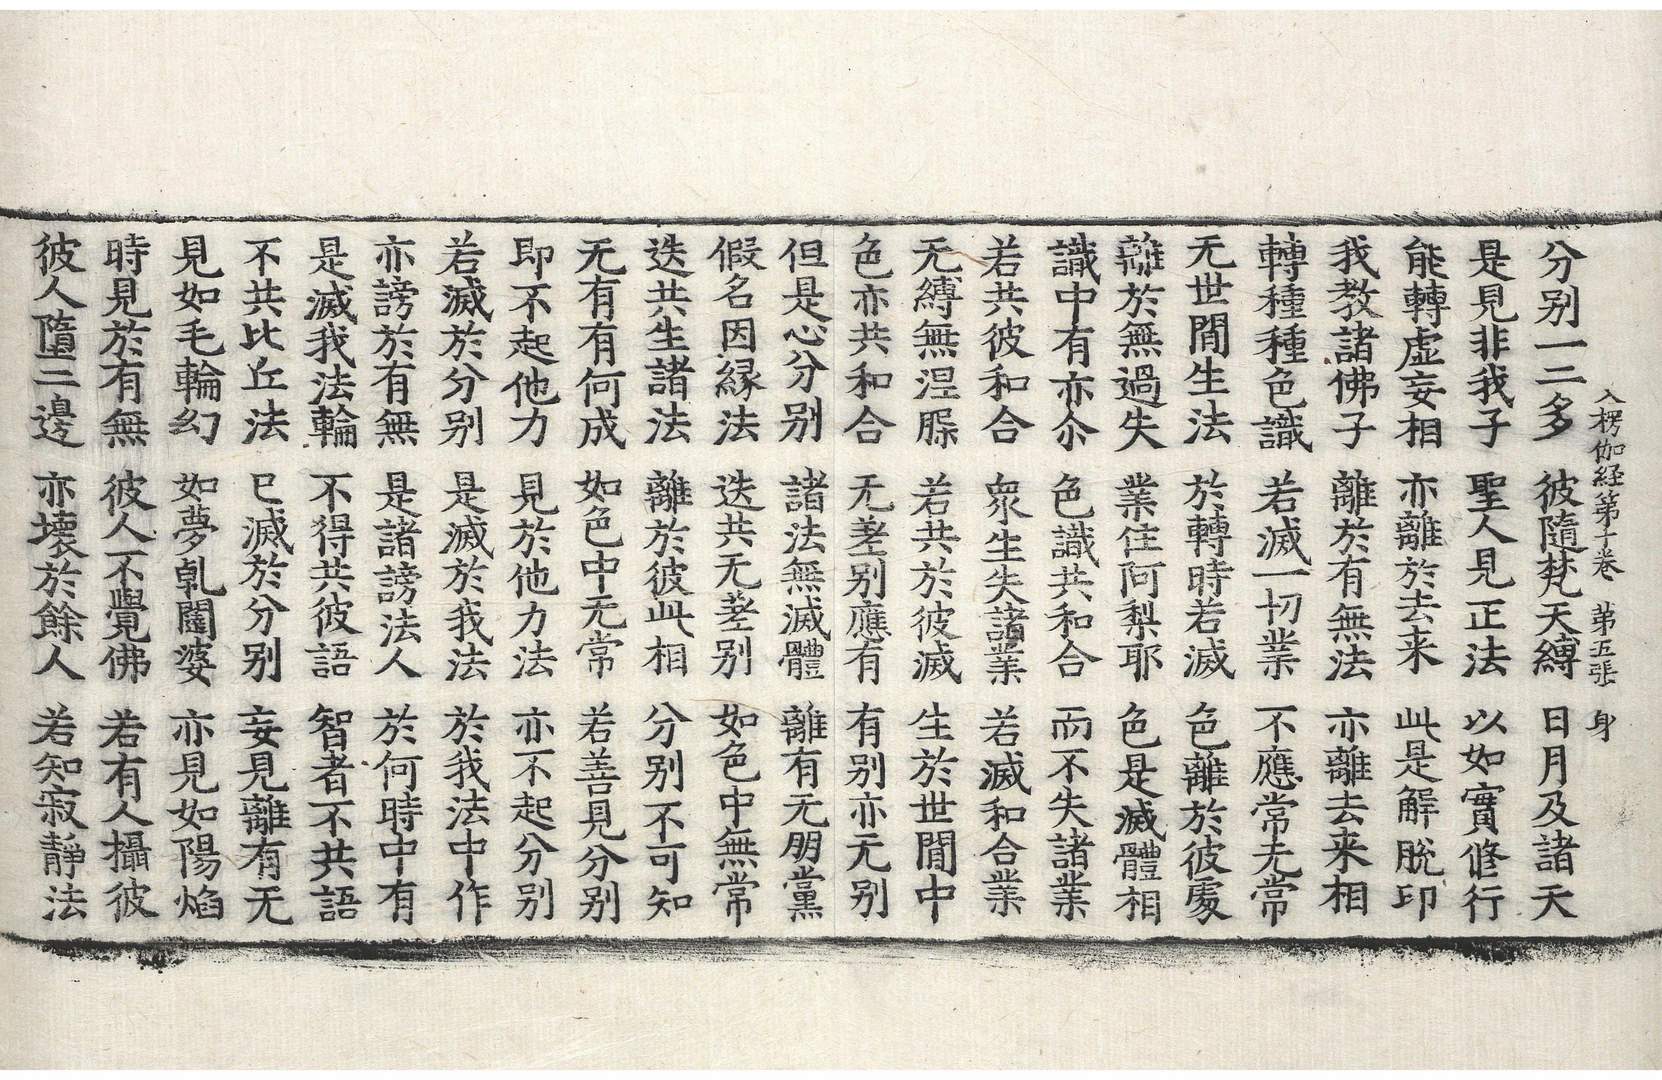 入楞伽経第十卷 第五張 身
分别一二多 彼隨梵天縛 日月及諸天
是見非我子 聖人見正法 以如實修行
能轉虛妄相 亦離於去来 此是解脫印
我教諸佛子 離於有無法 亦離去来相
轉種種色識 若滅一切業 不應常无常
无世間生法 於轉時若滅 色離於彼處
離於無過失 業住阿梨耶 色是滅體相
識中有亦尒 色識共和合 而不失諸業
若共彼和合 衆生失諸業 若滅和合業
无縛無涅槃 若共於彼滅 生於世間中
色亦共和合 无差别應有 有别亦无别
但是心分别 諸法無滅體 離有无朋黨
假名因縁法 迭共无差别 如色中無常
迭共生諸法 離於彼此相 分别不可知
无有有何成 如色中无常 若善見分别
即不起他力 見於他力法 亦不起分别
若滅於分别 是滅於我法 於我法中作
亦謗於有無 是諸謗法人 於何時中有
是滅我法輪 不得共彼語 智者不共語
不共比丘法 已滅於分别 妄見離有无
見如毛輪幻 如夢乹闥婆 亦見如陽焰
時見於有無 彼人不覺佛 若有人攝彼
彼人墮二邊 亦壊於餘人 若知寂静法